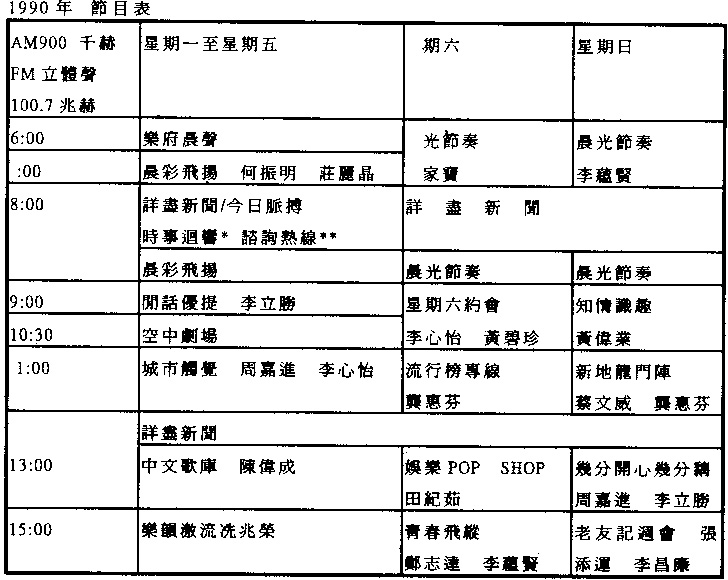 1990年 節目表
AM900 千赫 星期一至星期五 期六 星期日
FM立體聲
100.7兆赫
6:00 樂府晨聲 光節奏 晨光節奏
:00 晨彩飛揚 何振明 莊麗晶 家寶 李蘊賢
8:00 詳盡新聞/今日脈搏 詳 盡 新 聞
時事迴響* 諮詢熱線**
晨彩飛揚 晨光節奏 晨光節奏
9:00 閒話優提 李立勝 星期六約會 知情識趣
10:30 空中劇場 李心怡 黃碧珍 黃偉業
1:00 城市觸覺 周嘉進 李心怡 流行榜專線 新地龍門陣
龔惠芬 蔡文威 龔惠芬
詳盡新聞
13:00 中文歌庫 陳偉成 娛樂POP SHOP 幾分開心幾分癲
田紀茹 周嘉進 李立勝
15:00 樂韻激流冼兆榮 青春飛縱 老友記週會 張
鄭志達 李蘊賢 添運 李昌廉